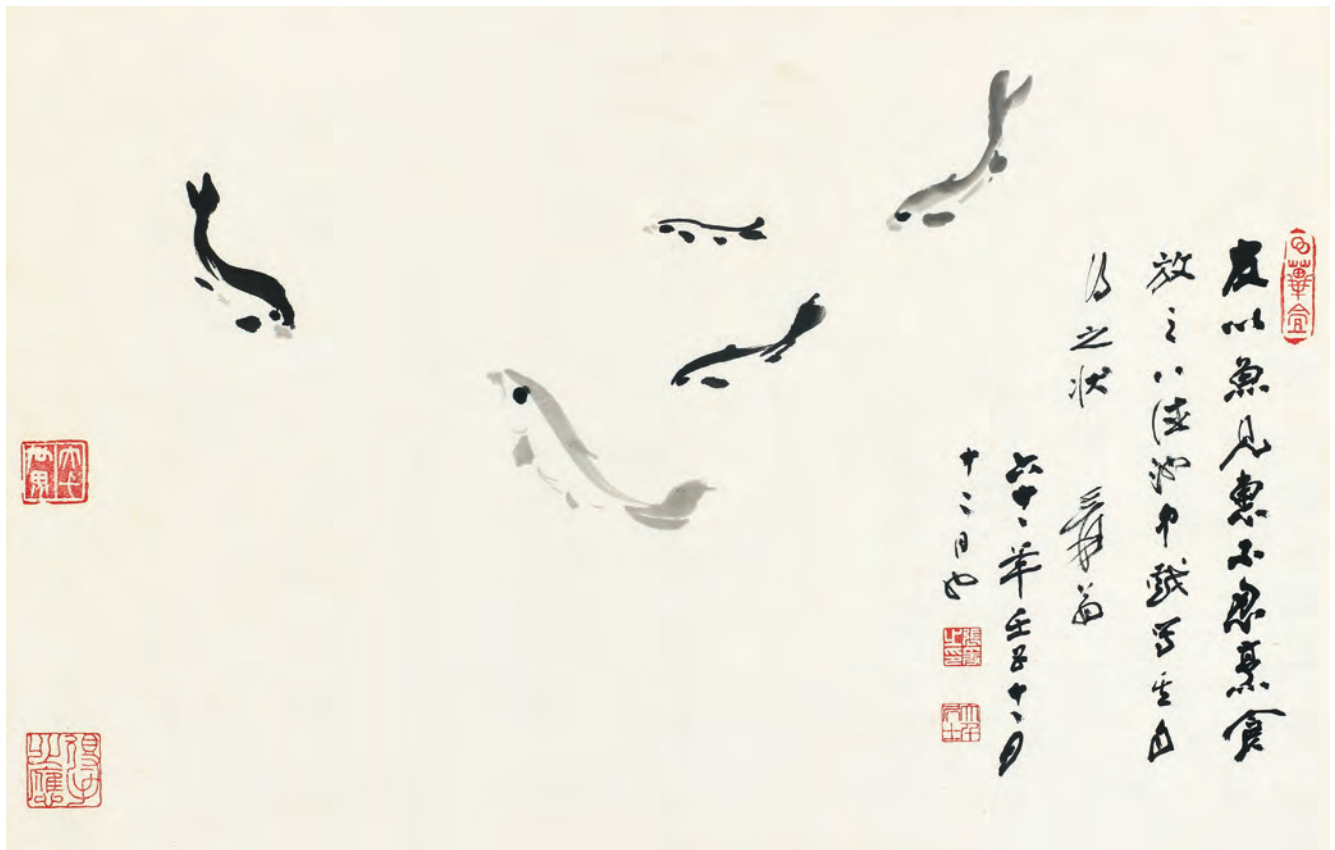 友以魚見惠不忍烹食
放之八德池中戲寫其自
得之状 爰翁
六十一年壬子十一月
十二日也
張爰之印
大千居士
大千世界